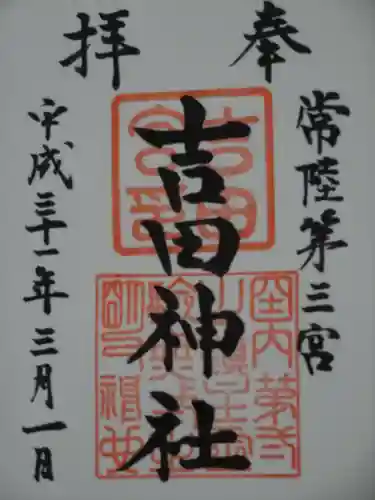 奉拝
常陸第三宮
吉田神社
平成三十一年三月一日